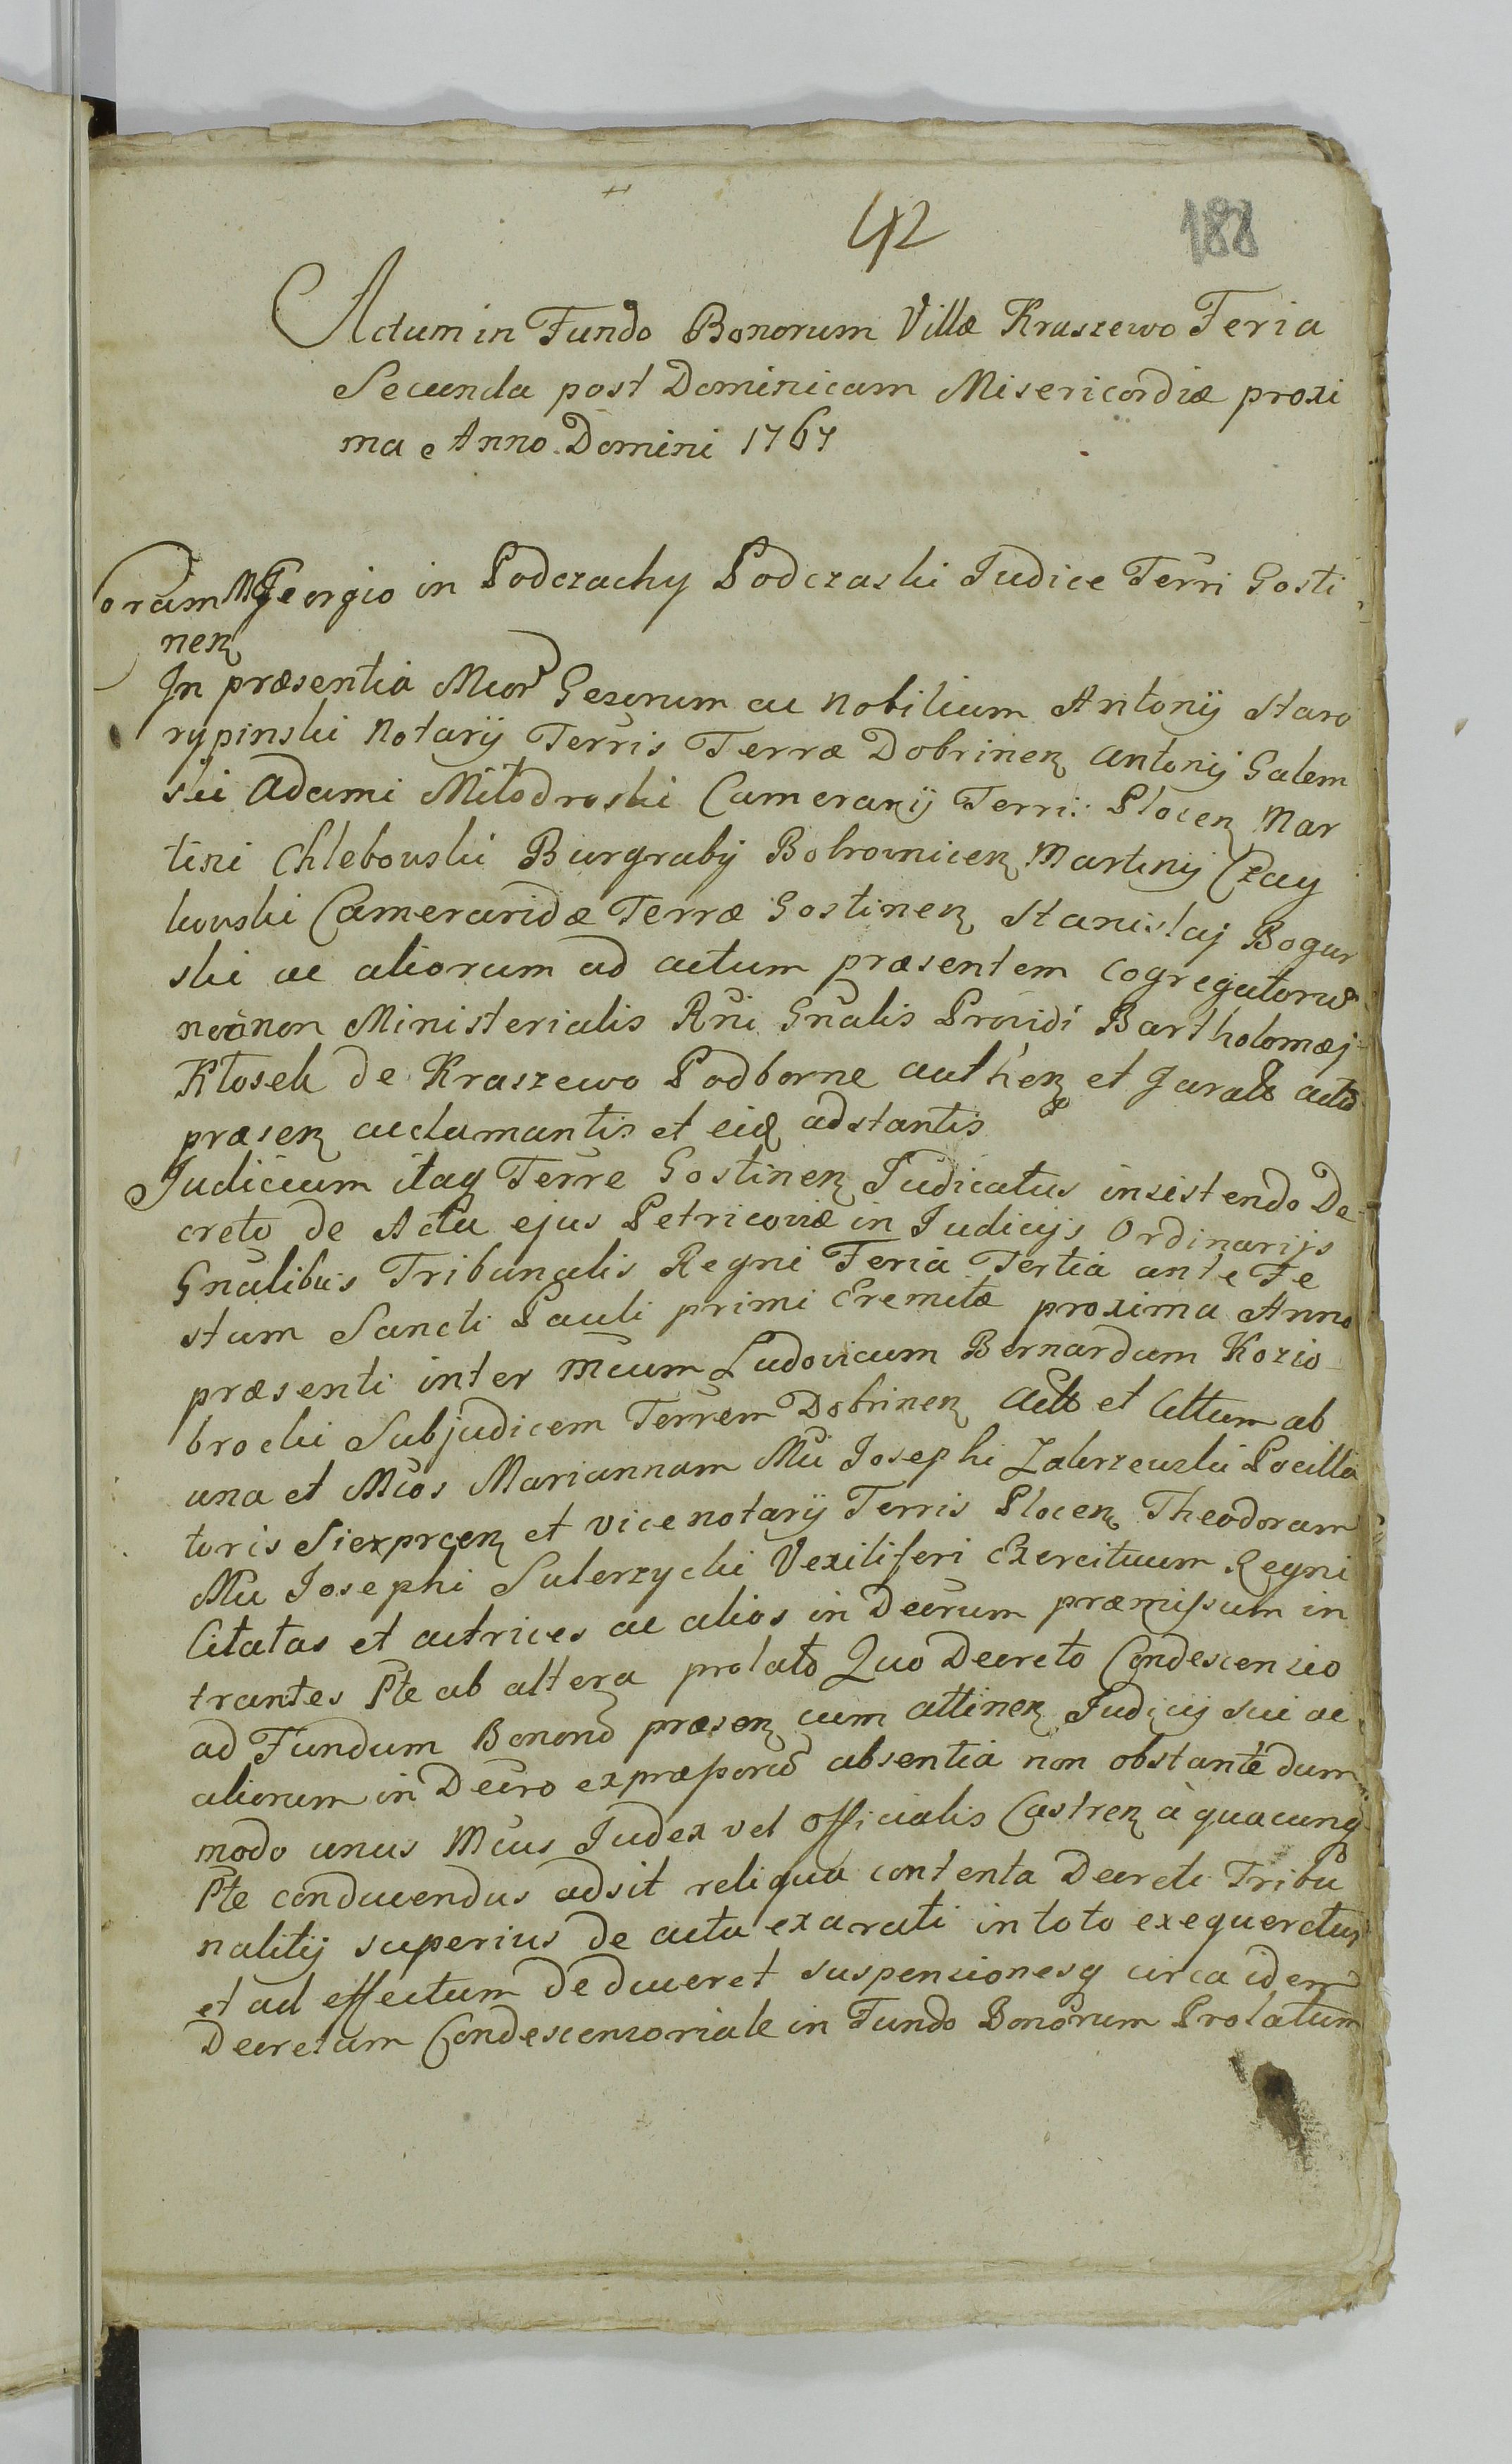 42
188
Actum in Fundo Bonorum Villæ Kraszewo Feria
Secunda post Dominicam Misericordiæ proxi
ma Anno Domini 1767
Coram M Georgio in Podczachy Podczaski Judice Terri Gosti
nen
In præsentia Mcor Gesorum ac Nobilium Antonij Staro
rypinski Notarij Terris Terræ Dobrinen Antonij Galem
ski Adami Miłodroski Camerarij Terri: Plocen Mar
tini Chlebowski Burgrabij Bobrownicen Martinij Czay
kowski Cameraridæ Terræ Gostinen Stanislaj Bogur
ski ac aliorum ad actum præsentem cogregatorum
necnon Ministerialis Rni Gnalis Providi Bartholomæj
Kłosek de Kraszewo Podborne authen et Jurati actû
præsen aclamantis et eidq adstantis
Judicium itaq Terre Gostinen Judicatus insistendo De
creto de Actu ejus Petricoviæ in Judicijs Ordinarijs
Gnalibus Tribunalis Regni Feria Tertia ante Fe
stum Sancti Pauli primi Eremitæ proxima Anno
præsenti inter Mcum Ludovicum Bernardum Kozio
brocki Subjudicem Terrem Dobrinen Act et Cittum ab
una et Mcos Mariannam Mci Josephi Zakrzewski Pocilla
toris Sierprcen et Vicenotarij Terris Plocen Theodoram
Mci Josephi Sulerzycki Vexiliferi Exercituum Regni
Citatas et actrices ac alios in Decrum præmissum in
trantes Pte ab altera prolato Quo Decreto Condescensio
ad Fundum Bonorû præsen cum attinen Judicij sui ac
aliorum in Decro expræssorû absentia non obstante dum
modo unus Mcus Judex vel Officialis Castren à quacunq
Pte conducendus adsit reliqua contenta Decreti Tribu
nalitij superius de actu exarati in toto exequeretur
et ad effectum deduceret suspensionesq circa idem
Decretum Condescensoriale in Fundo Bonorum Prolatum